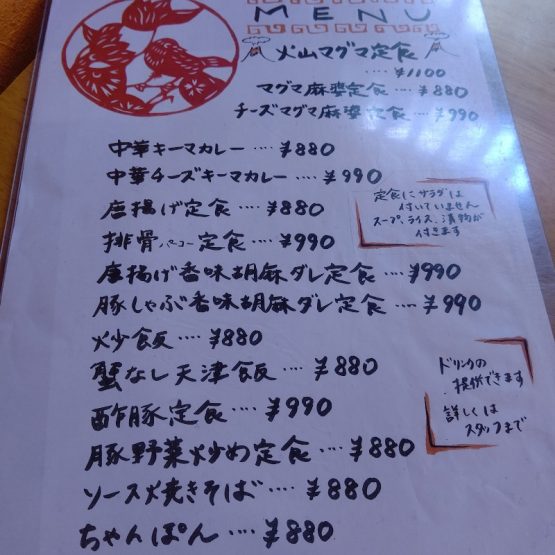 MENU
火山マグマ定食
‥‥¥1100
マグマ麻婆定食‥‥¥880
チーズマグマ麻婆定食‥¥990
中華キーマカレー‥‥¥880
中華チーズキーマカレー‥‥¥990
定食にサラダは
付いていません
スープ、ライス、漬物が
付きます
唐揚げ定食‥‥¥880
排骨パーコー定食‥‥¥990
唐揚げ香味胡麻ダレ定食‥‥¥990
豚しゃぶ香味胡麻ダレ定食‥‥¥990
炒飯‥‥¥880
蟹なし天津飯‥‥¥880
ドリンクの
提供できます
詳しくは
スタッフまで
酢豚定食‥‥¥990
豚野菜炒め定食‥‥¥880
ソース焼きそば‥‥¥880
ちゃんぽん‥‥¥880